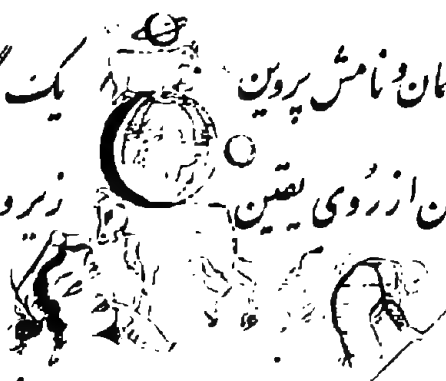 مان و نامش پروین یک
از رُوی یقین زیر و